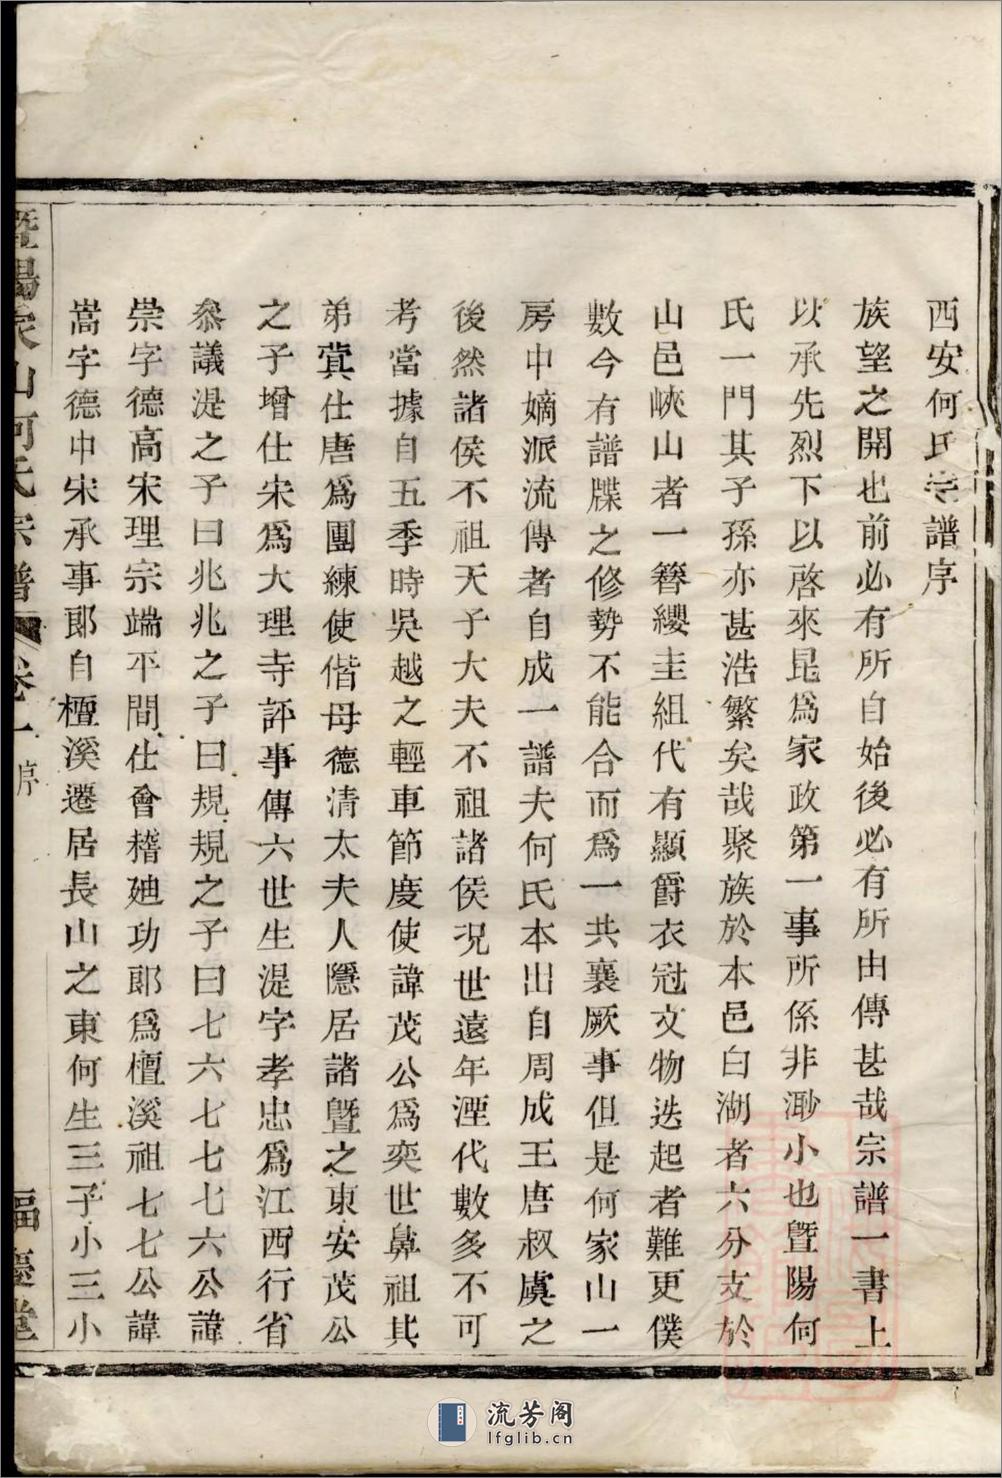 西安何氏宗譜序
族望之開也前必有所自始後必有所由傳甚哉宗譜一書上
以承先烈下以啓來昆爲家政第一事所係非渺小也暨陽何
氏一門其子孫亦甚浩繁矣哉聚族於本邑白湖者六分支於
山邑峽山者一簪纓圭組代有顯爵衣冠文物迭起者難更僕
數今有譜牒之修勢不能合而爲一共襄厥事但是何家山一
房中嫡派流傳者自成一譜夫何氏本出自周成王唐叔虞之
後然諸侯不祖天子大夫不祖諸侯况世遠年湮代數多不可
考當據自五季時吳越之輕車節度使諱茂公爲奕世鼻祖其
弟蓂仕唐爲團練使偕母德清太夫人隱居諸暨之東安茂公
之子增仕宋爲大理寺評事傳六世生湜字孝忠爲江西行省
叅議湜之子曰兆兆之子曰規規之子曰七六七七七六公諱
崇字德高宋理宗端平間仕會稽廸功郞爲檀溪祖七七公諱
嵩字德中宋承事郞自檀溪遷居長山之東何生三子小三小
暨陽家山何氏宗譜 卷一 序 福慶堂
流芳阁
lfglib.cn